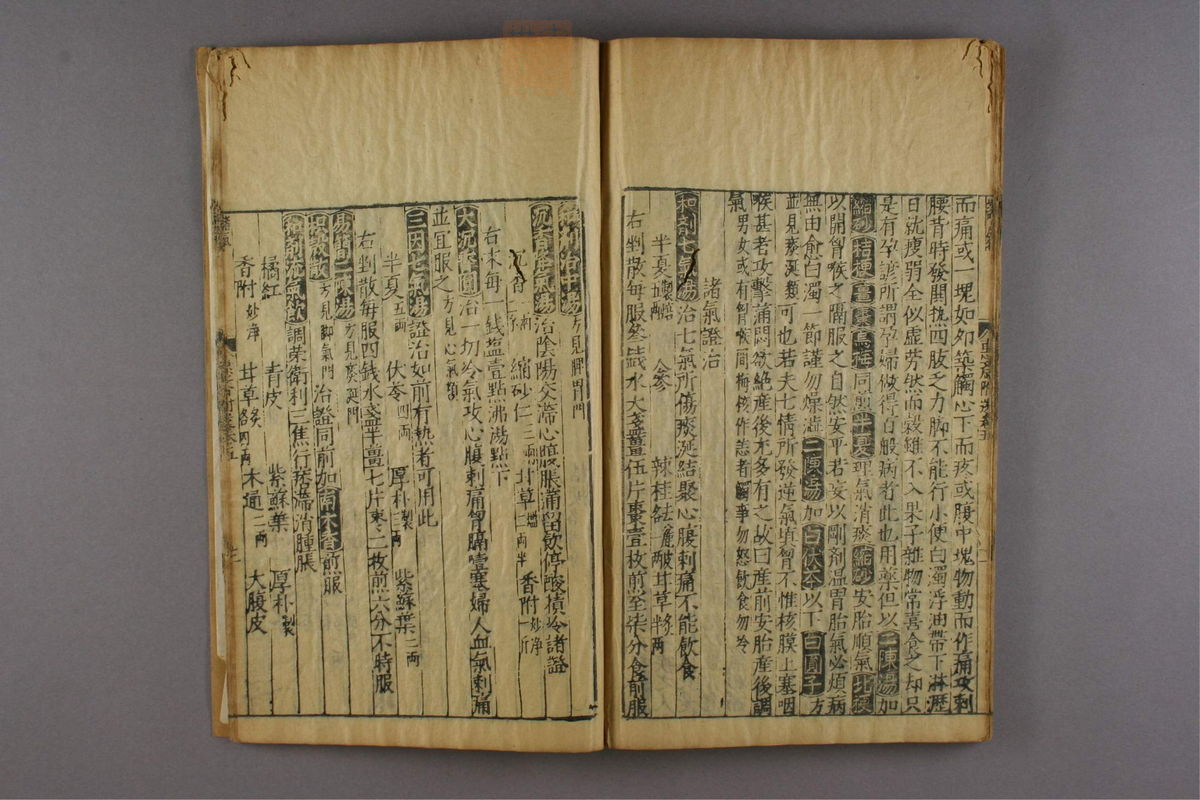 而痛或一塊如卵築觸心下而疼或腹中塊物動而作痛攻刺
腰背時發開執四肢之力脚不能行小便白濁浮油帶下淋瀝
日就瘦弱全似虛勞然而穀雖不入果子雜物常喜食之却只
是有孕諺所謂孕婦做得百般病者此也用藥但以二陳湯加
縮砂桔梗薑棗烏梅同煎半夏理氣消痰縮砂安胎順氣北梗
以開胷喉之膈服之自然安平若妄以剛剤温胃胎氣必煩病
無由愈白濁一節謹勿燥澁二陳湯加白伏苓以下白圓子方
並見痰涎類可也若夫七情所發逆氣填胷不惟核膜上塞咽
喉甚者攻擊滿悶欲絶產後尤多有之故曰産前安胎産後調
氣男女或有胷喉間梅核作恙者觸事勿怒飲食勿冷
諸氣證治
和剤七氣湯治七氣所傷痰涎結聚心腹刺痛不能飲食
半夏 參 辣桂各一兩 甘草半兩
右剉散每服叁錢水大盞薑伍片棗壹枚煎至柒分食前服
和剤治中湯方見脾胃門
沉香降氣湯治陰陽交滯心腹脹滿留飲停酸積冷諸證
沉香 縮砂仁 甘草 香附炒净一斤
右末每一錢塩壹點沸湯點下
大沉香圓治一切冷氣攻心腹刺痛胷膈噎塞婦人血氣刺痛
並宜服之方見心氣類
三因七氣湯證治如前有熱者可用此
半夏五兩 伏苓四兩 厚朴製三兩 紫蘇葉二兩
右剉散每服四錢水盞半薑七片棗二枚煎六分不時服
易簡二陳湯方見痰涎門
方見脚氣門 治證同前加南木香煎服
和剤流氣飲調榮衛利三焦行痞滯消腫脹
橘紅 青皮 紫蘇葉 厚朴製
香附炒净 甘草炙各四兩 木通二兩 大腹皮